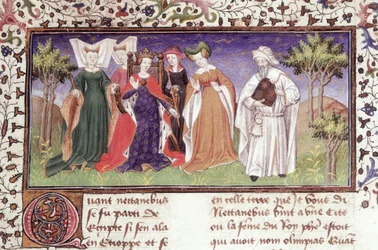 Quant nectanebus
se fu parti de
Egipte si sen ala
en Etioppe et se
en celle terre que je vous di
Nectanebus vint a vne Cite
ou la feme du Roy phe estoit
qui auoit nom olimpias Quāt